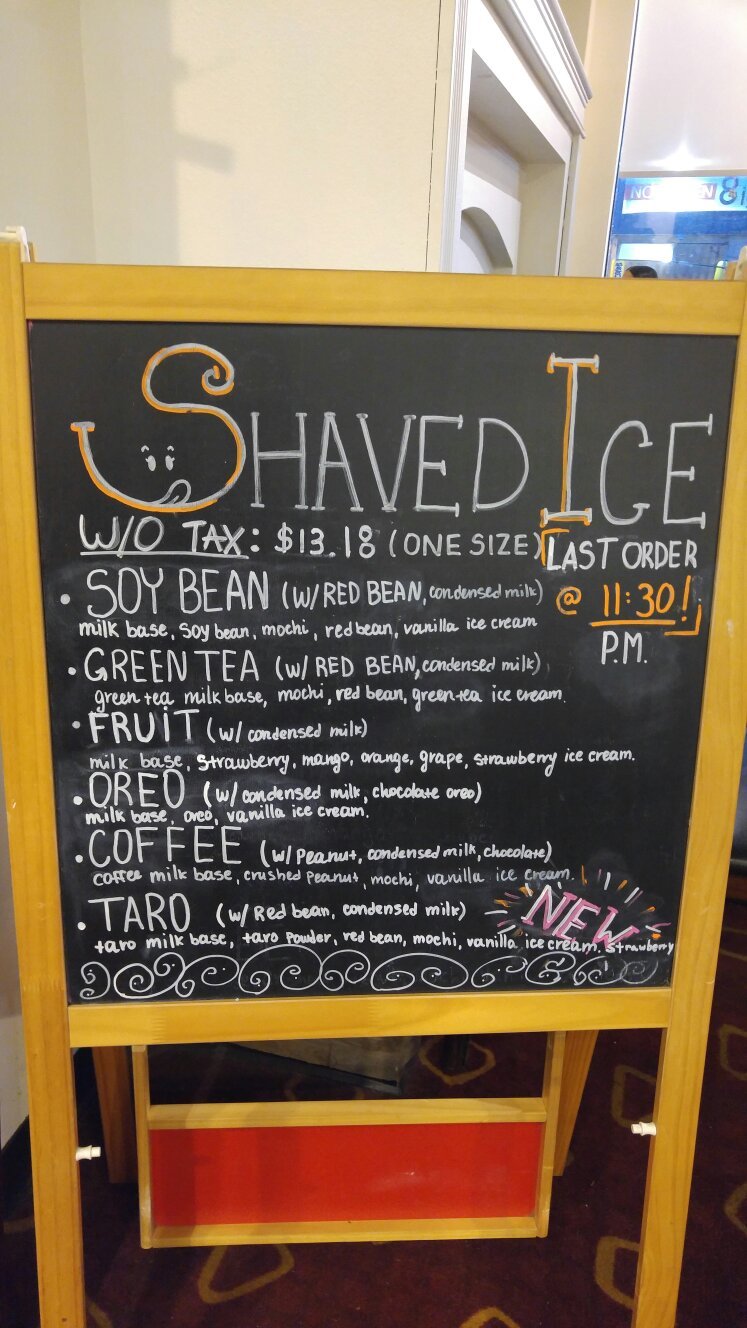 SHAVED ICE
W/O TAX: $13.18 (ONE SIZE)
LAST ORDER
@ 11:30!
P.M.
• SOY BEAN (W/ RED BEAN, condensed milk)
milk base, soy bean, mochi, red bean, vanilla ice cream
• GREEN TEA (W/ RED BEAN, condensed milk)
green tea milk base, mochi, red bean, green tea ice cream.
• FRUIT (w/ condensed milk)
milk base, strawberry, mango, orange, grape, strawberry ice cream.
• OREO (w/ condensed milk, chocolate oreo)
milk base, oreo, vanilla ice cream.
• COFFEE (w/ Peanut, condensed milk, chocolate)
coffee milk base, crushed peanut, mochi, vanilla ice cream.
• TARO (w/ Red bean, condensed milk)
NEW
taro milk base, taro powder, red bean, mochi, vanilla ice cream. strawberry